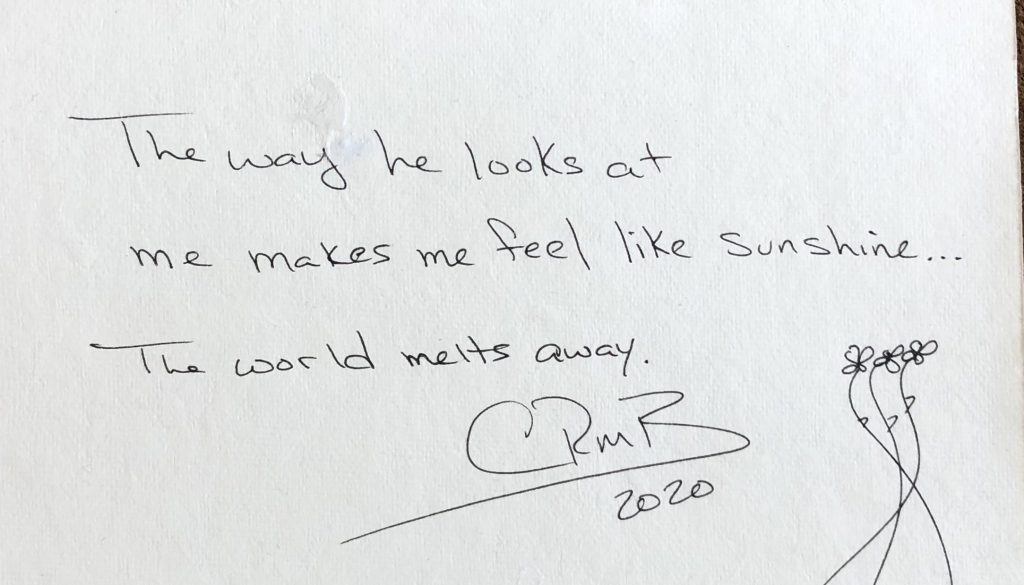 The way he looks at
me makes me feel like sunshine...
The world melts away.
CRMB
2020